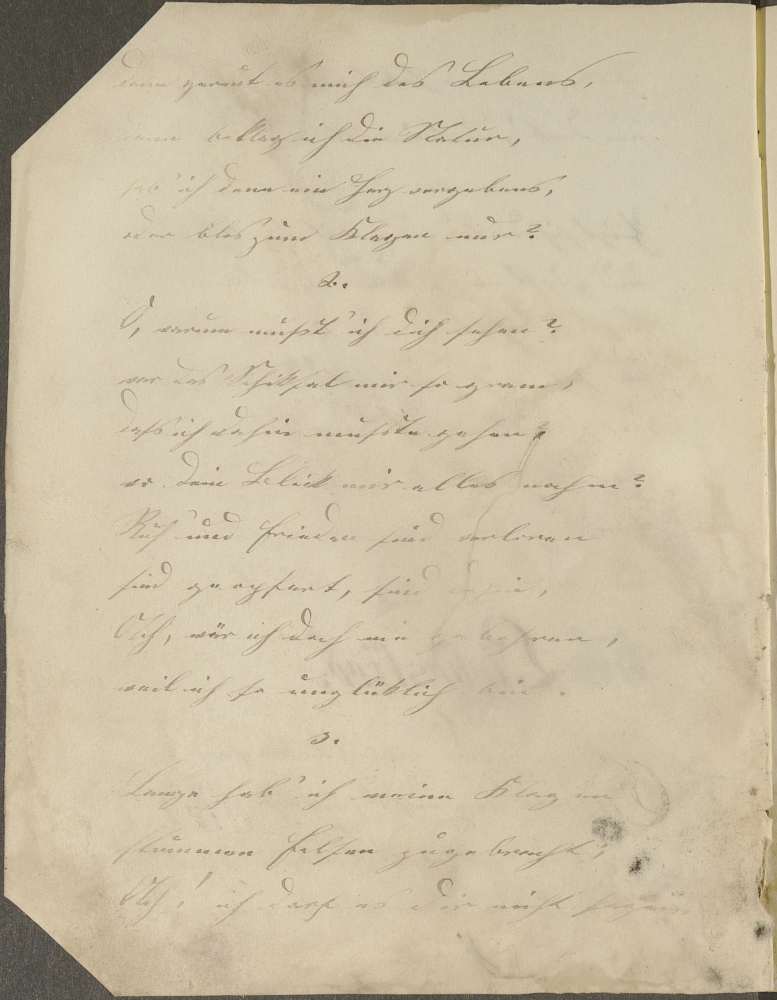 dann gereut es mich des Lebens,
dann beklag ich die Natur,
hab' ich denn ein Herz vergebens,
oder blos zum Klagen nur?
2.
O, warum mußt' ich dich sehen?
war das Schiksal mir so gram,
daß ich dahin mußte gehen?
wo dein Blick mir alles nahm?
Ruh' und Frieden sind verloren
sind geopfert, sind dahin,
Ach, wär ich doch nie gebohren,
weil ich so unglüklich bin.
3.
Lange hab' ich meine Klagen
stummen Felsen zugebracht,
Ach! ich darf es dir nicht sagen